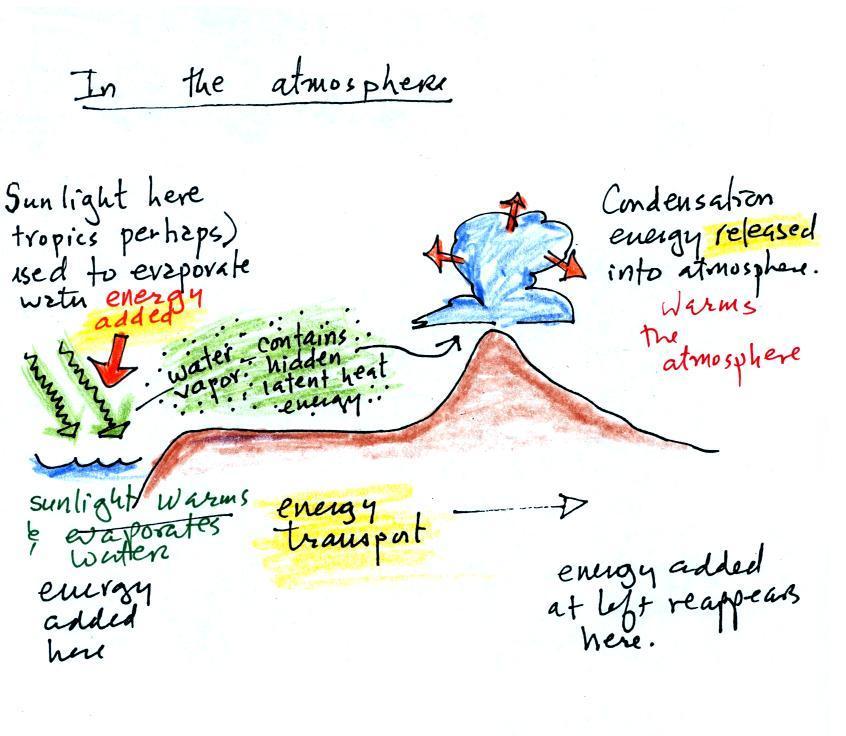 In the atmosphere
Sunlight here
tropics perhaps)
used to evaporate
water energy
added
Condensation
energy released
into atmosphere.
Warms
the
atmosphere
water - contains
vapor - hidden
latent heat
energy
sunlight warms
& evaporates
water
energy
added
here
energy
transport
energy added
at left reappears
here.